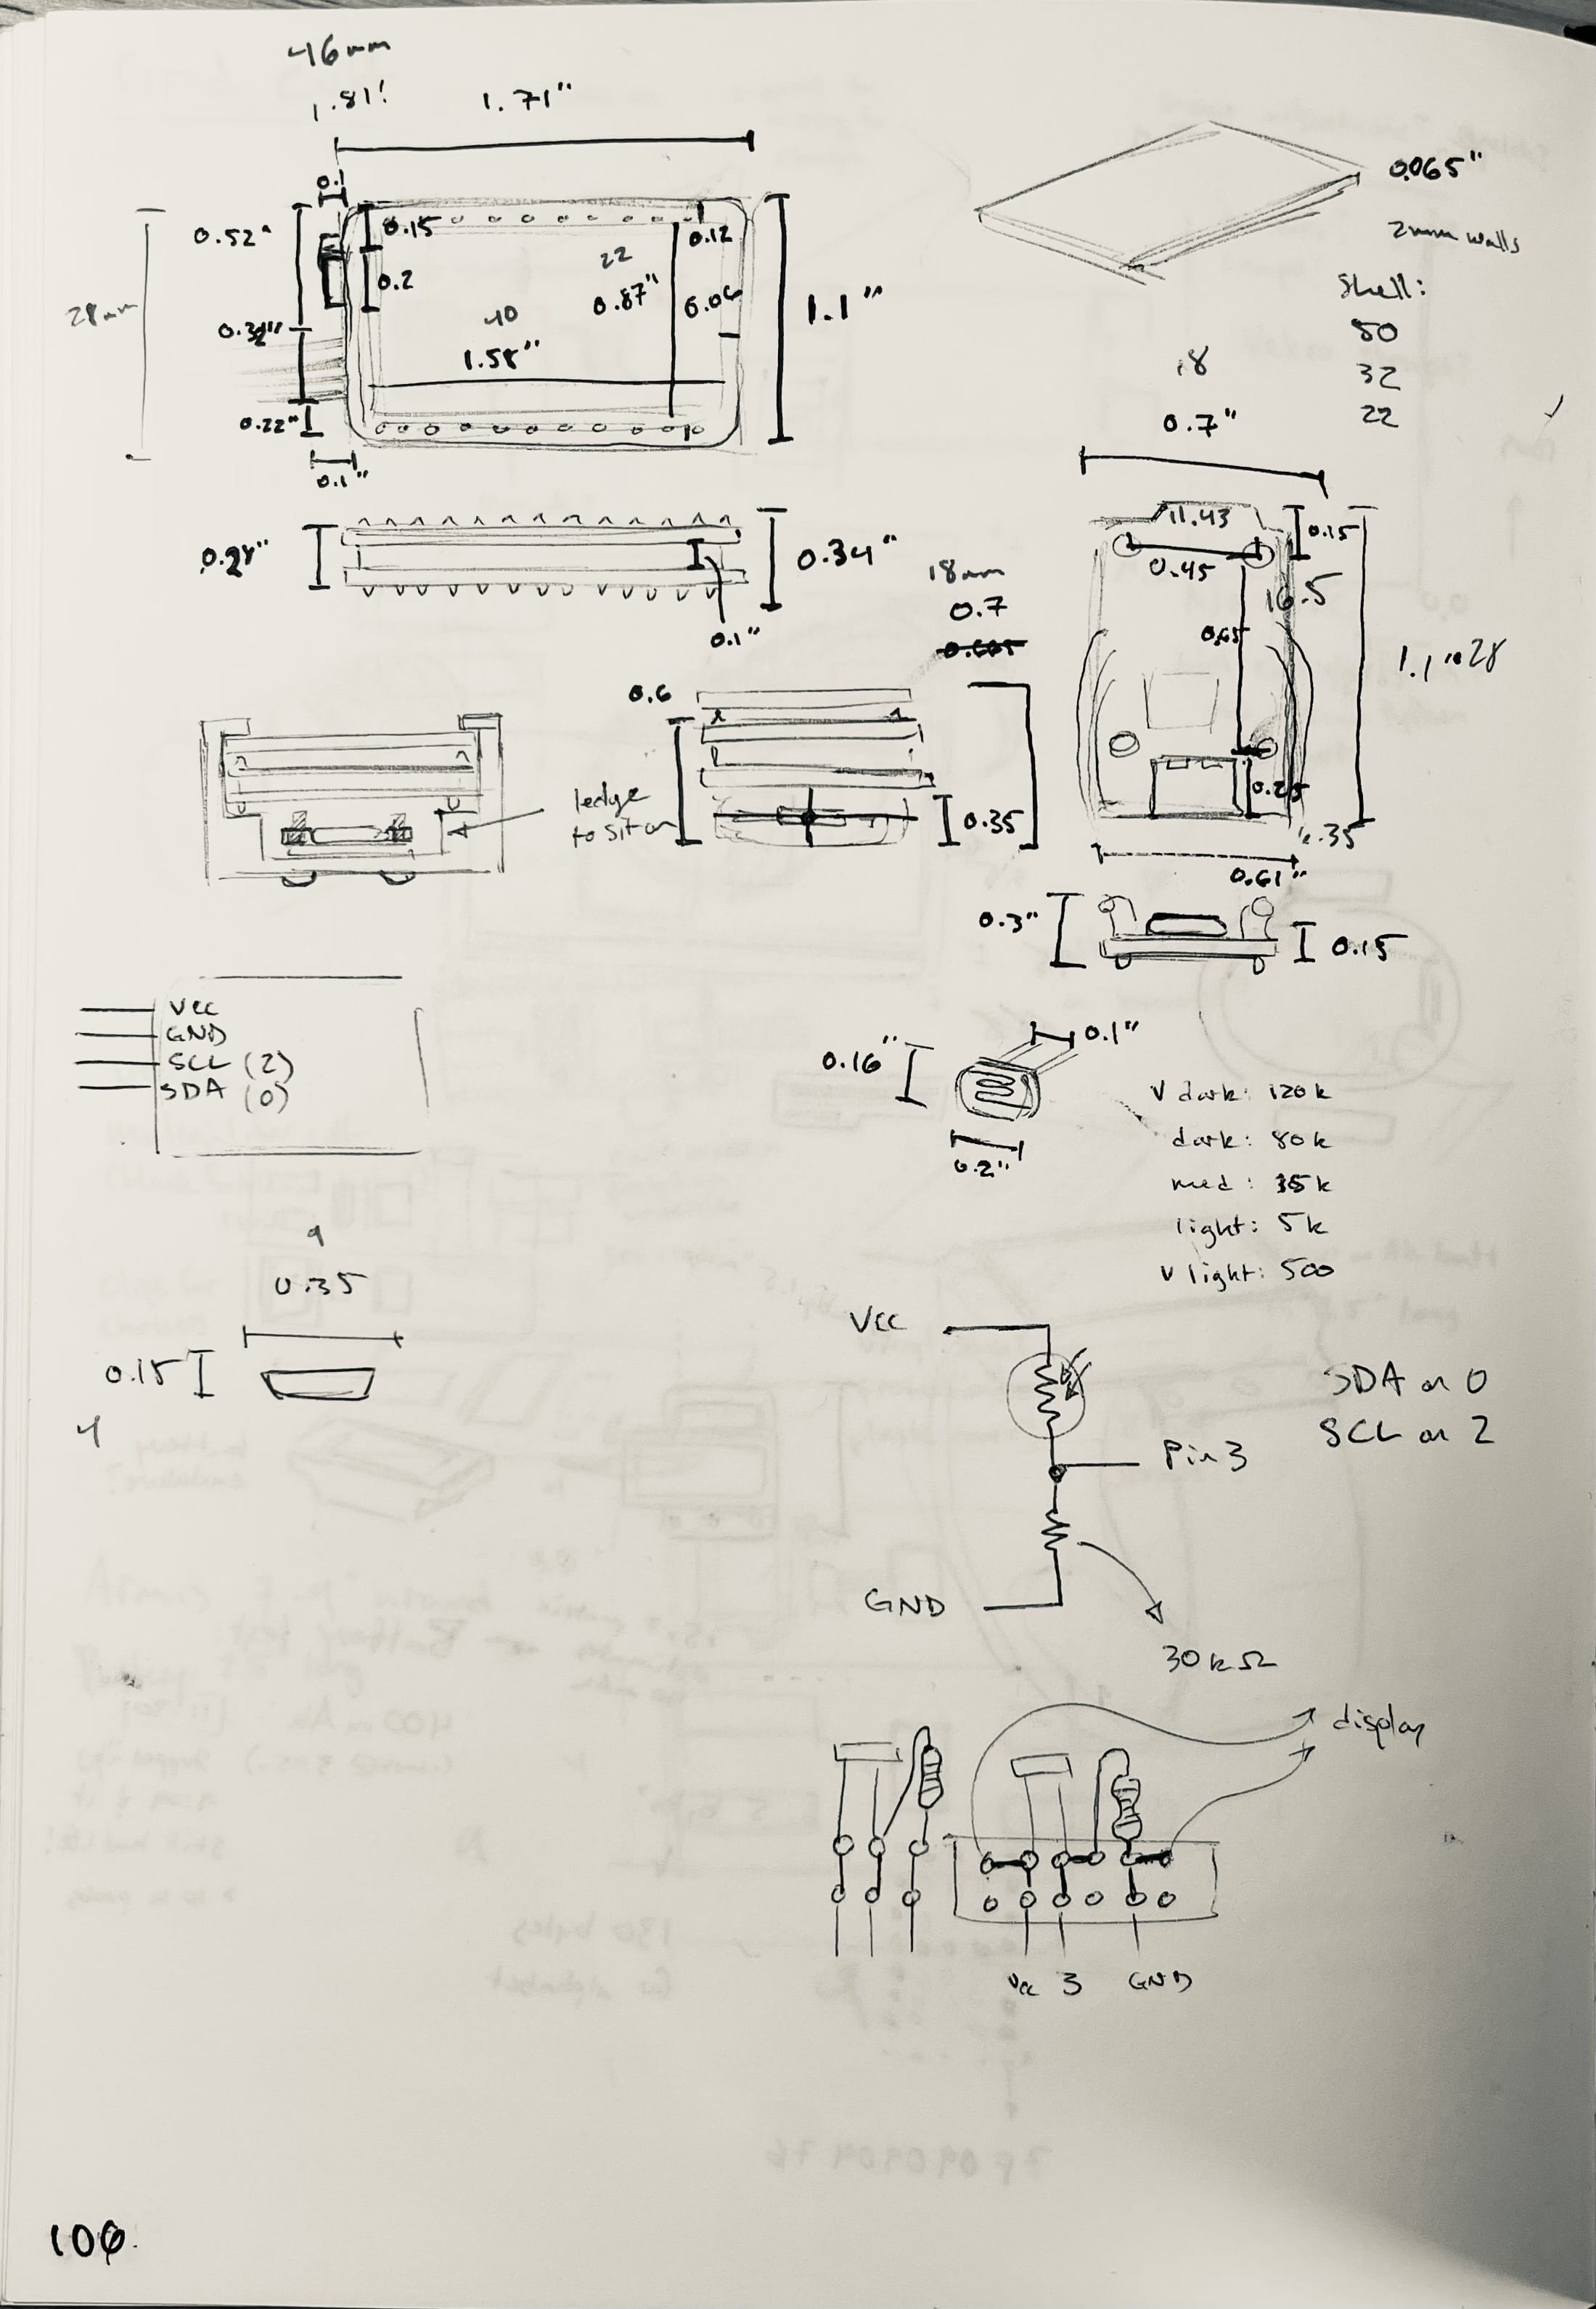 46mm
1.81"
1.71"
0.1
0.52"
0.15
0.12
22
0.87"
0.2
28mm
0.32"
40
1.58"
1.1"
0.22"
0.1"
0.065"
2mm walls
Shell:
50
32
22
18
0.7"
0.34"
0.1"
11.43
0.15
0.45
16.5
0.65
1.1" 28
0.25
6.35
0.61"
18mm
0.7
0.6
0.35
ledge
to sit on
0.3"
0.15
VCC
GND
SCL (2)
SDA (0)
0.16"
0.1"
0.2"
v dark: 120k
dark: 80k
med: 35k
light: 5k
v light: 500
9
0.35
0.15
4
VCC
Pin 3
GND
30kΩ
SDA on 0
SCL on 2
display
Vcc 3 GND
106